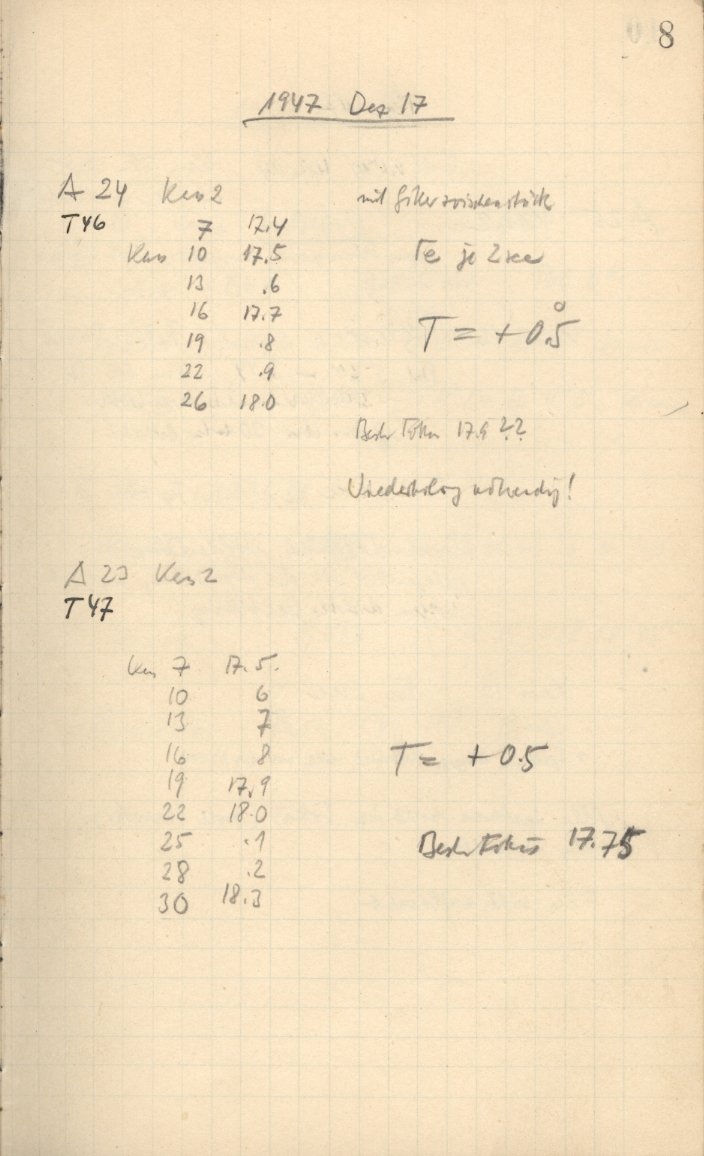 8
1947 Dez 17
A 24 Kas 2
T46
7 17.4
Kas 10 17.5
13 .6
16 17.7
19 .8
22 .9
26 18.0
mit
je 2 sec
T = + 0.5°
Bester Fokus 17.9 ??
Wiederholung notwendig!
A 23 Kas 2
T47
Kas 7 17.5.
10 6
13 7
16 8
19 17.9
22 18.0
25 .1
28 .2
30 18.3
T = + 0.5
Bester Fokus 17.75